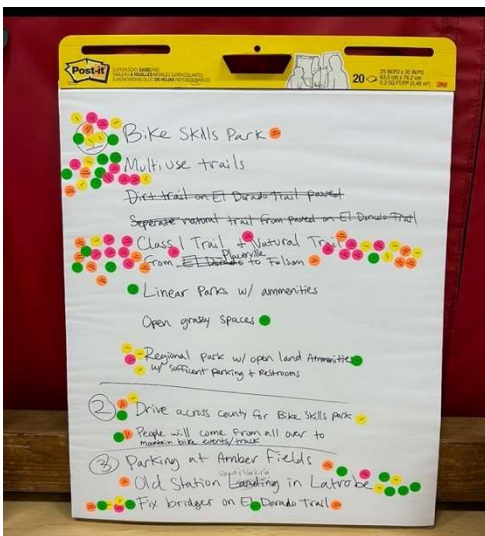 Post-it
20
25 IN/PO x 30 IN/PO
63,5 cm x 76,2 cm
① Bike Skills Park
Multiuse trails
Dirt trail on El Dorado Trail paved
Seperate natural trail from paved on El Dorado Trail
Class 1 Trail + Natural Trail
From El Dorado Placerville to Folsom
Linear Parks w/ ammenities
Open grassy spaces
Regional park w/ open land Ammenities
w/ sufficent parking + Restrooms
② Drive across county for Bike Skills park
People will come from all over to
maintain bike events/track
③ Parking at Amber Fields
Old Station Landing in Latrobe
Fix bridges on El Dorado Trail